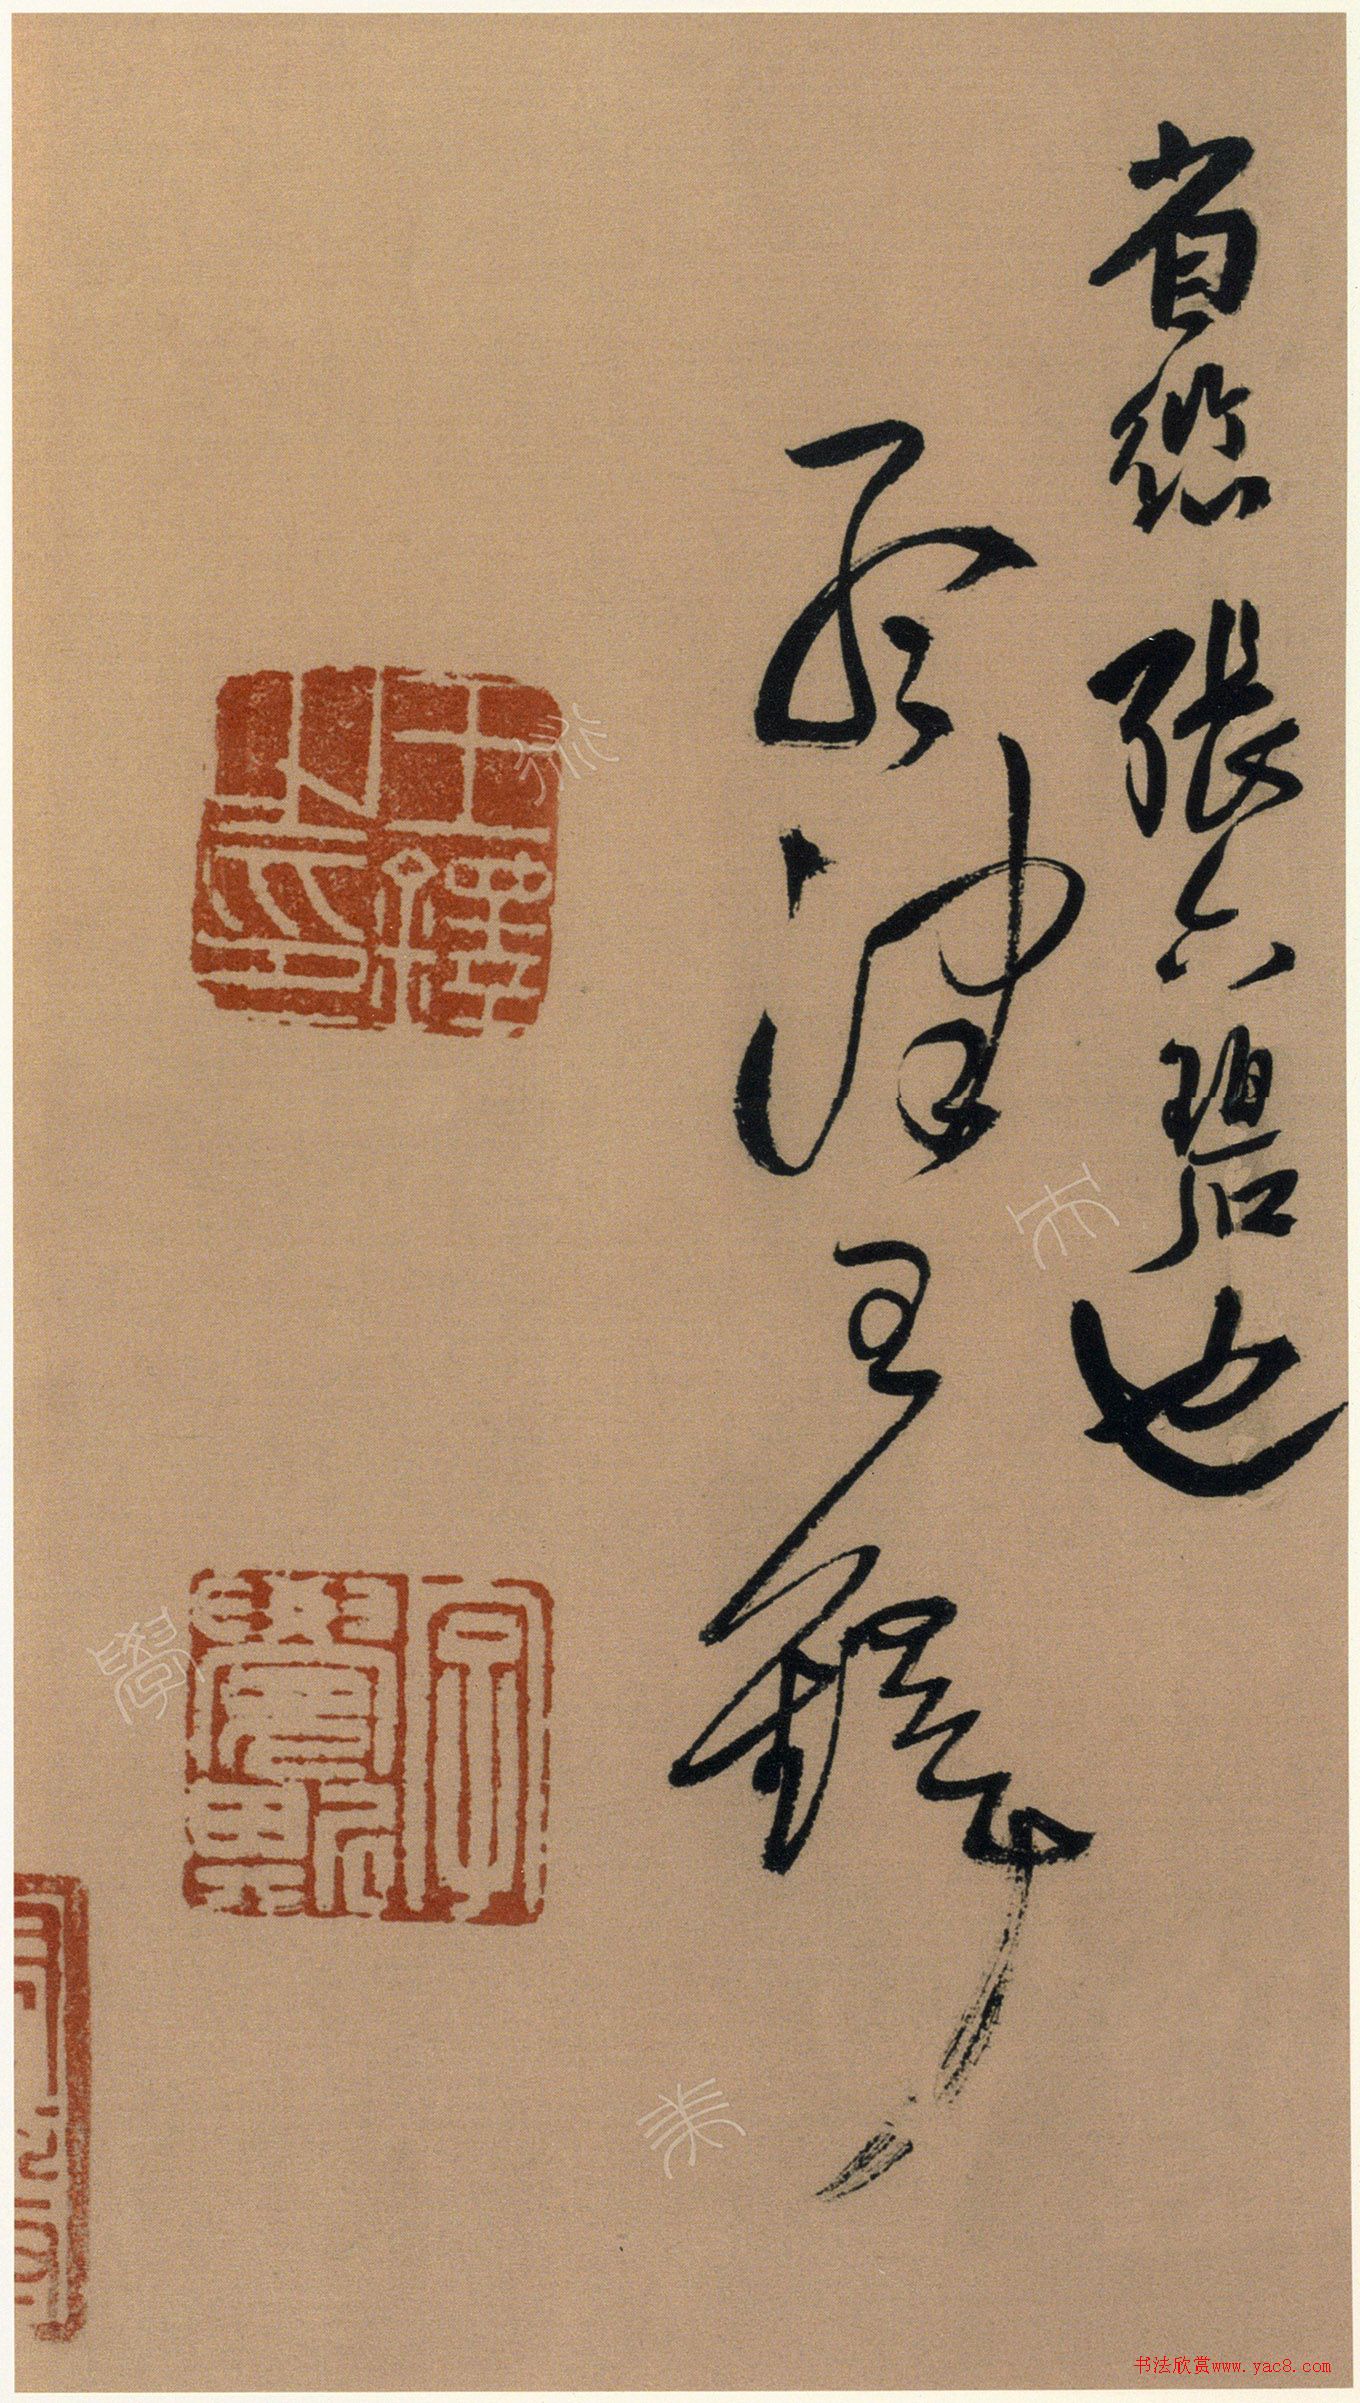 省總張六碧也
孟津王鐸
王鐸之印
书法欣赏www.yac8.com